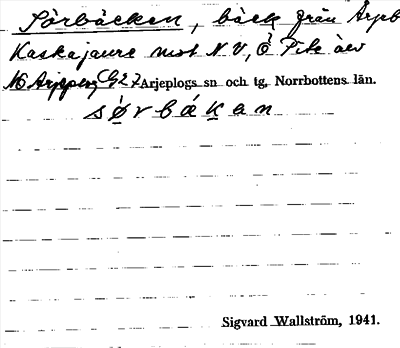 Sörbäcken, bäck från Arjeb
Kaskajaure mot N V, Ö Pite älv
Arjeplogs sn och tg, Norrbottens län.
Sigvard Wallström, 1941.